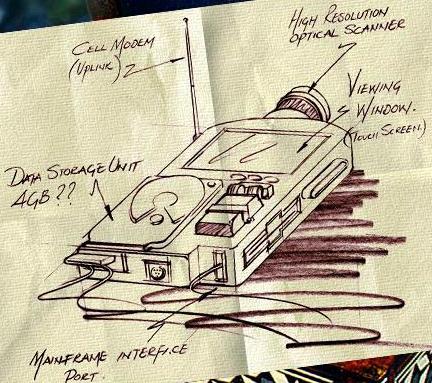 HIGH RESOLUTION
OPTICAL SCANNER
CELL MODEM
(UPLINK)
VIEWING
WINDOW.
(TOUCH SCREEN)
DATA STORAGE UNIT
4GB ??
MAINFRAME INTERFACE
PORT.